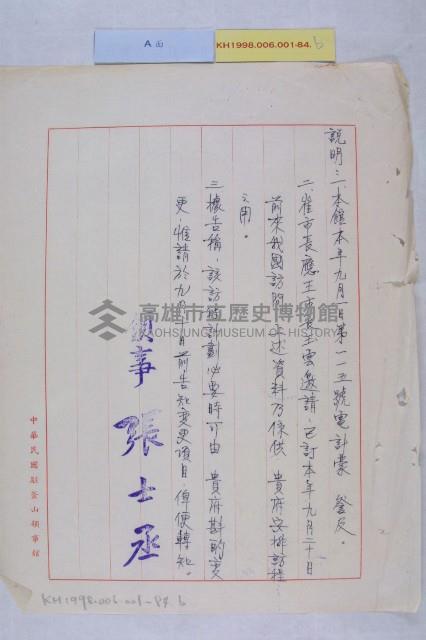 A面
KH1998.006.001-84.b
説明：一、本館本年九月一日第一一五號電計蒙　詧及。
二、崔市長應王市長玉雲邀請，已訂本年九月二十日
前來我國訪問，上述資料乃係供　貴府安排訪程
之用。
三、據告稱，該訪問計劃必要時可由　貴府斟酌變
更，惟請於九月十日前告知變更項目，俾便轉知。
領事　張士丞
中華民國駐釜山領事館
高雄市立歷史博物館
KAOHSIUNG MUSEUM OF HISTORY
KH1998.006.001-84.b